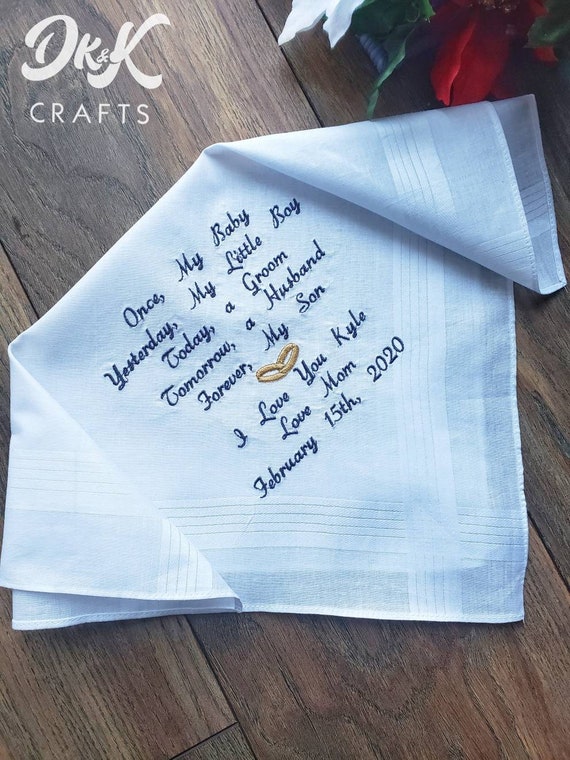 DK&K
CRAFTS
Once, My Baby
Yesterday, My Little Boy
Today, a Groom
Tomorrow, a Husband
Forever, My Son
I Love You Kyle
Love Mom
February 15th, 2020